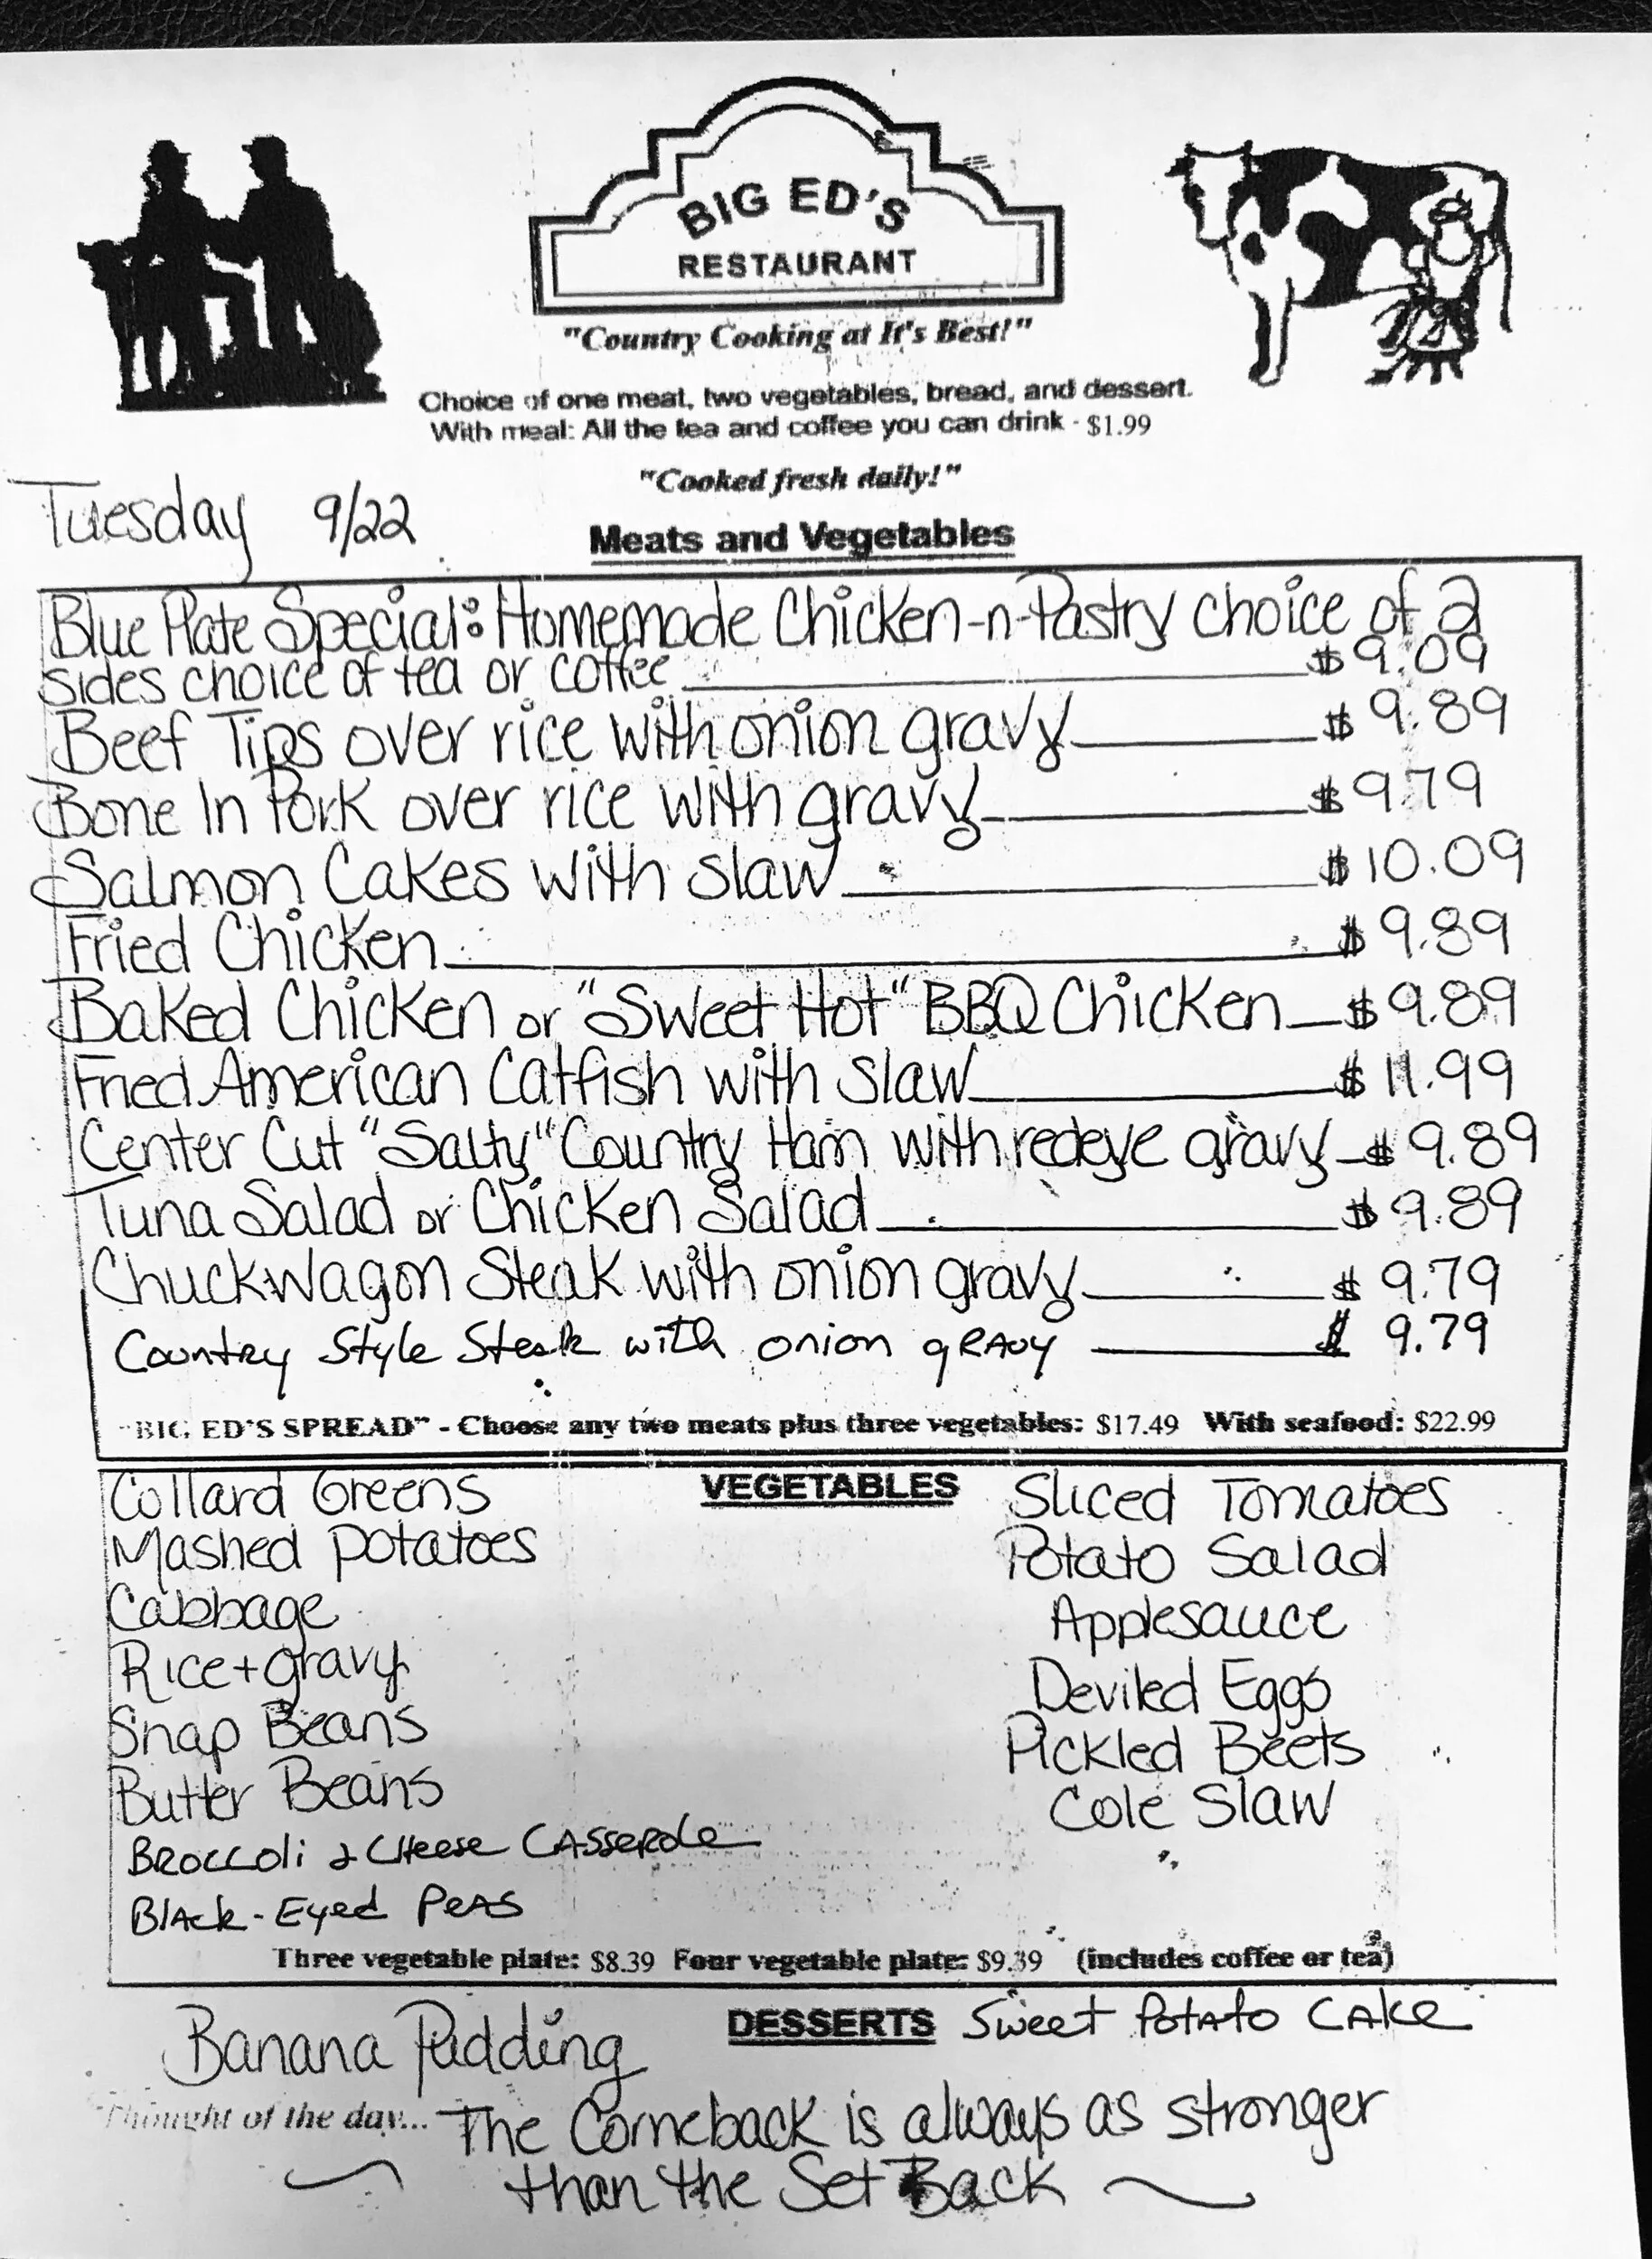 BIG ED'S
RESTAURANT
"Country Cooking at It's Best!"
Choice of one meat, two vegetables, bread, and dessert.
With meal: All the tea and coffee you can drink - $1.99
"Cooked fresh daily!"
Tuesday 9/22
Meats and Vegetables
Blue Plate Special: Homemade Chicken-n-Pastry choice of 2
sides choice of tea or coffee $9.09
Beef Tips over rice with onion gravy $9.89
Bone In Pork over rice with gravy $9.79
Salmon Cakes with slaw $10.09
Fried Chicken $9.89
Baked Chicken or "Sweet Hot" BBQ Chicken $9.89
Fried American Catfish with slaw $11.99
Center Cut "Salty" Country Ham with redeye gravy $9.89
Tuna Salad or Chicken Salad $9.89
Chuckwagon Steak with onion gravy $9.79
Country Style Steak with onion gRAvy $9.79
"BIG ED'S SPREAD" - Choose any two meats plus three vegetables: $17.49 With seafood: $22.99
VEGETABLES
Collard Greens
Mashed Potatoes
Cabbage
Rice + gravy
Snap Beans
Butter Beans
BROCCOLi & CHeese CASSeRole
BlAck-Eyed PeAS
Sliced Tomatoes
Potato Salad
Applesauce
Deviled Eggs
Pickled Beets
Cole Slaw
Three vegetable plate: $8.39 Four vegetable plate: $9.39 (includes coffee or tea)
DESSERTS
Banana Pudding
Sweet PotAto CAke
Thought of the day... The Comeback is always as stronger
than the Set Back